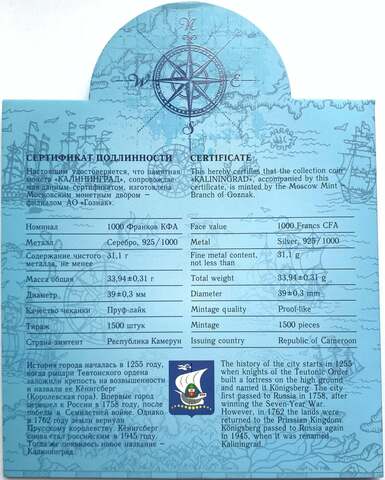 N
W
E
S
СЕРТИФИКАТ ПОДЛИННОСТИ
Настоящим удостоверяется, что памятная
монета «КАЛИНИНГРАД», сопровождае-
мая данным сертификатом, изготовлена
Московским монетным двором –
филиалом АО «Гознак».
CERTIFICATE
This hereby certifies that the collection coin
«KALININGRAD», accompanied by this
certificate, is minted by the Moscow Mint
Branch of Goznak.
Номинал 1000 Франков КФА
Металл Серебро, 925/1000
Содержание чистого
металла, не менее 31,1 г
Масса общая 33,94±0,31 г
Диаметр 39±0,3 мм
Качество чеканки Пруф-лайк
Тираж 1500 штук
Страна-эмитент Республика Камерун
Face value 1000 Francs CFA
Metal Silver, 925/1000
Fine metal content,
not less than 31,1 g
Total weight 33,94±0,31 g
Diameter 39±0,3 mm
Mintage quality Proof-like
Mintage 1500 pieces
Issuing country Republic of Cameroon
История города началась в 1255 году,
когда рыцари Тевтонского ордена
заложили крепость на возвышенности
и назвали ее Кёнигсберг
(Королевская гора). Впервые город
перешел к России в 1758 году, после
победы в Семилетней войне. Однако
в 1762 году земли вернули
Прусскому королевству. Кёнигсберг
снова стал российским в 1945 году.
Тогда же появилось новое название –
Калининград.
The history of the city starts in 1255
when knights of the Teutonic Order
built a fortress on the high ground
and named it Königsberg. The city
first passed to Russia in 1758, after
winning the Seven-Year War.
However, in 1762 the lands were
returned to the Prussian Kingdom.
Königsberg passed to Russia again
in 1945, when it was renamed
Kaliningrad.